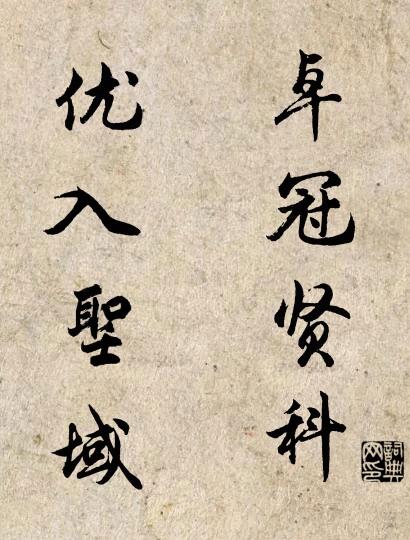 卓冠贤科
优入聖域
詞典网印